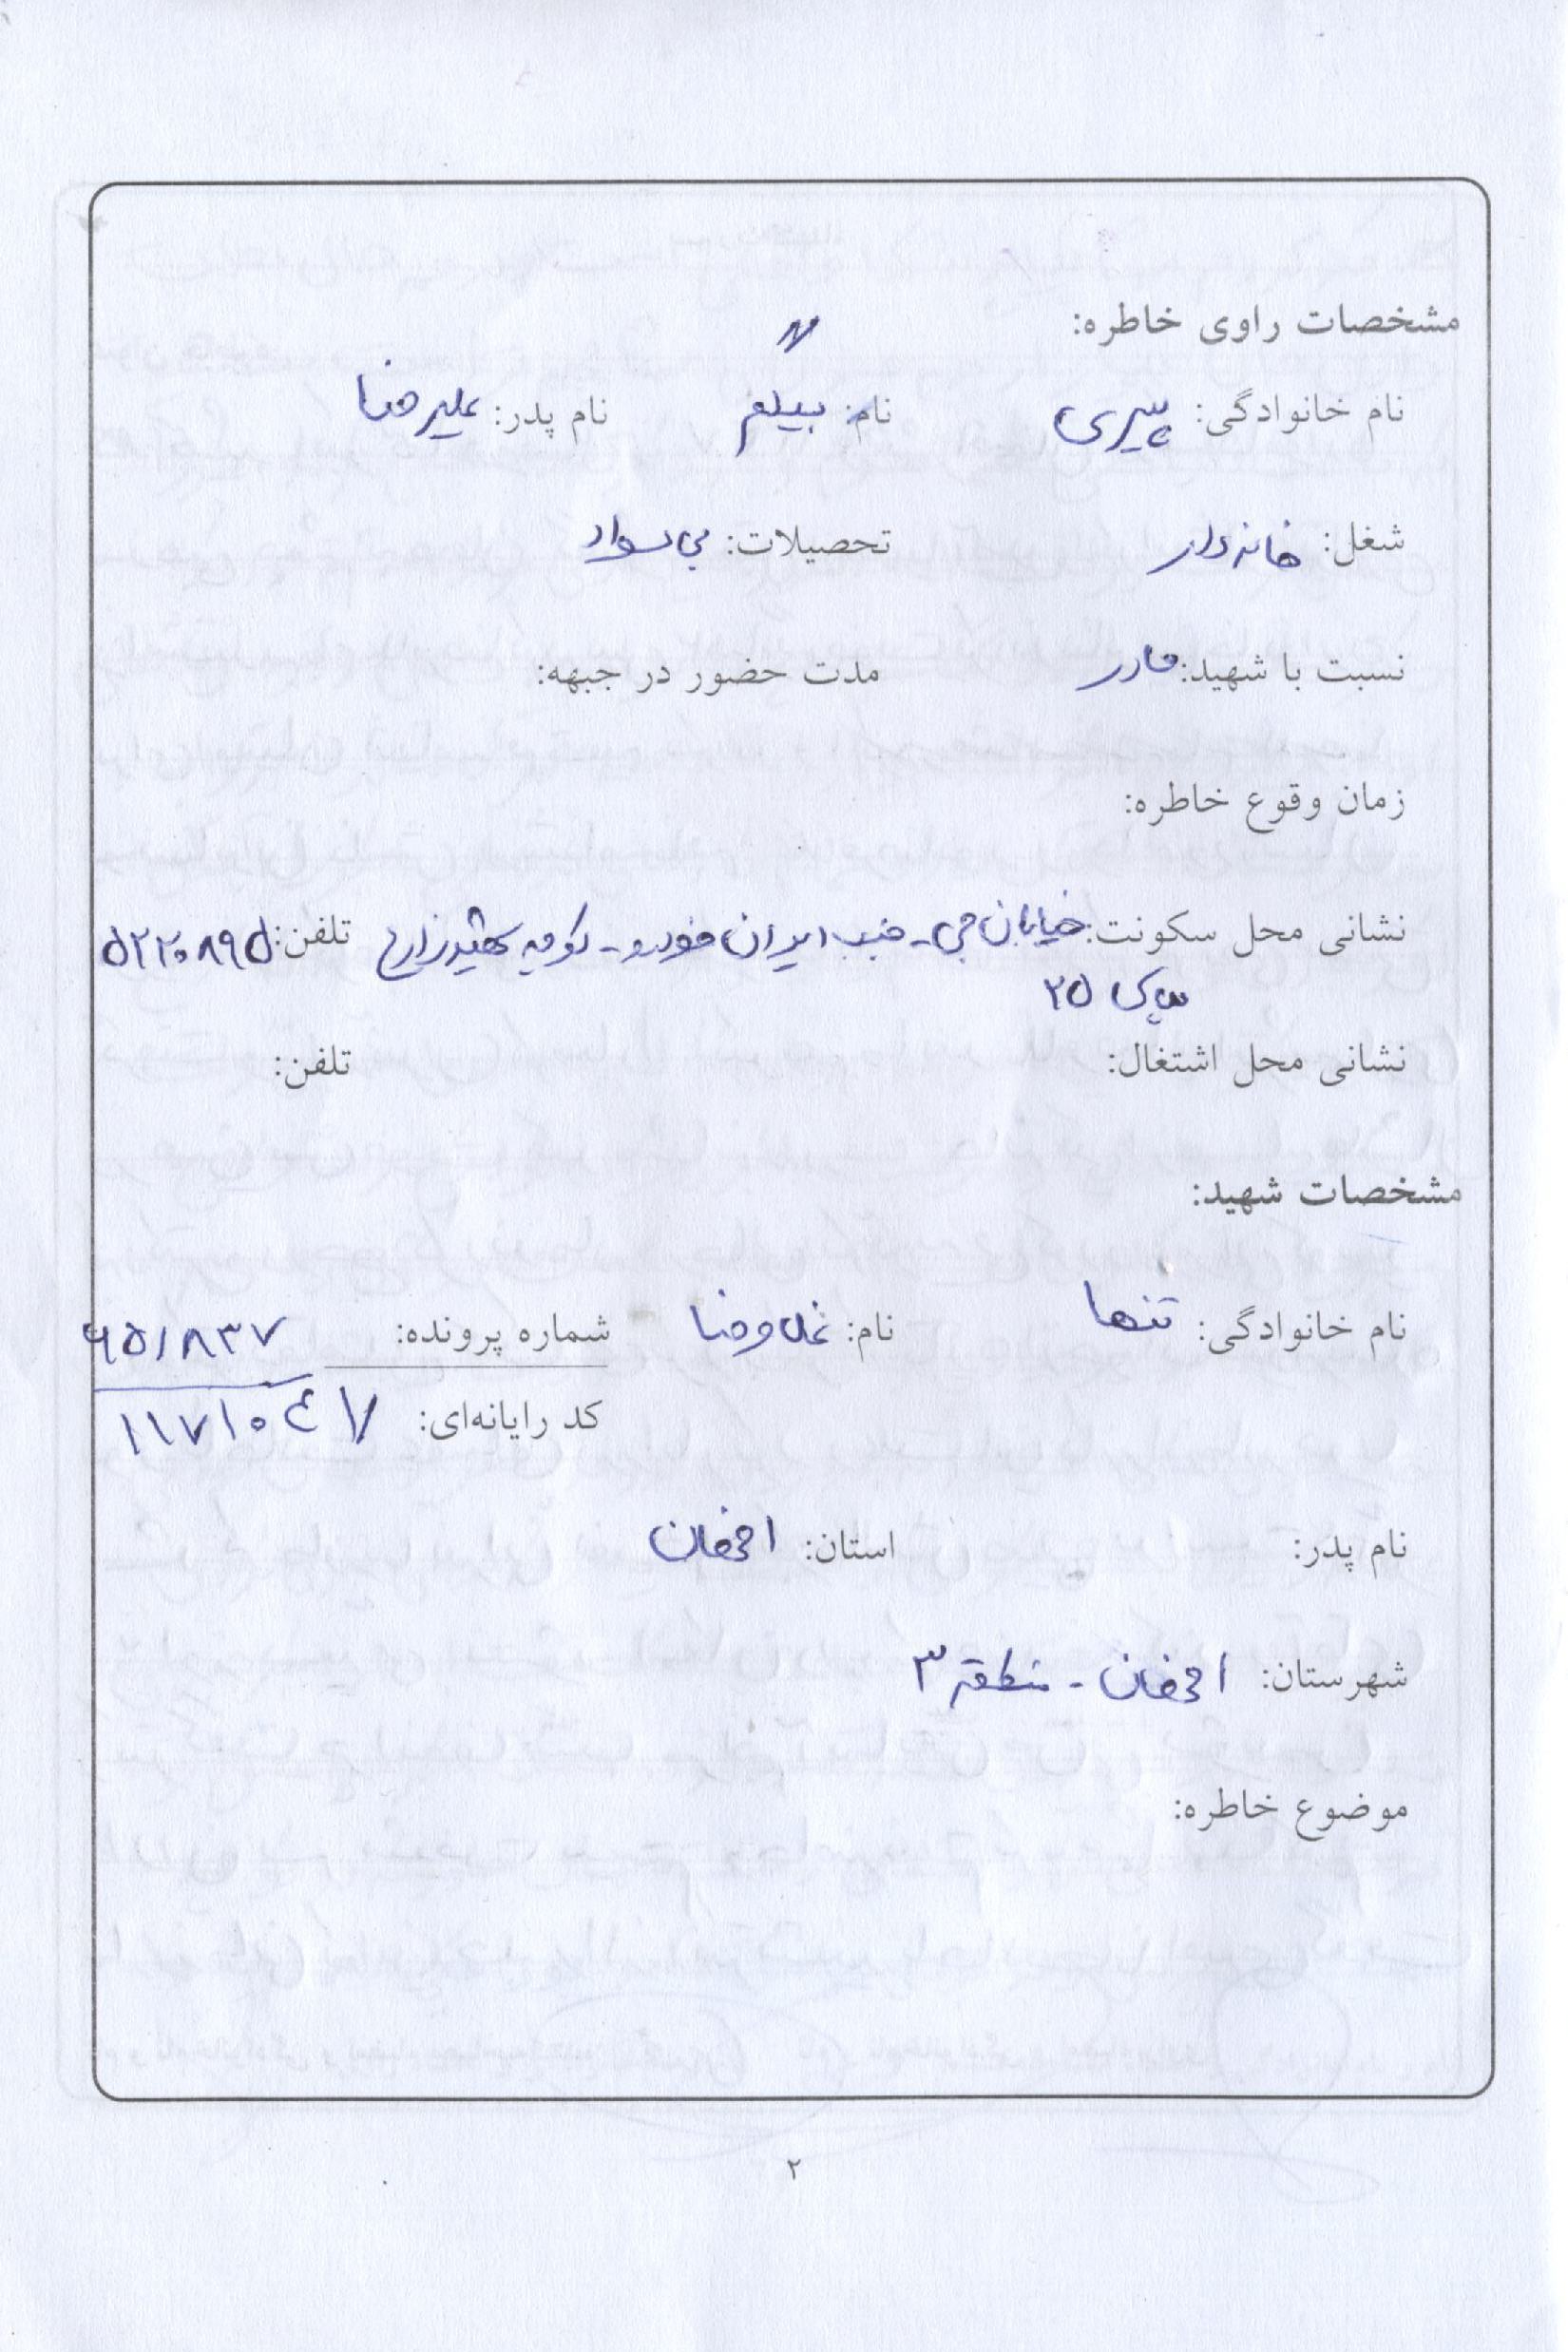 مشخصات راوی خاطره:
نام خانوادگی: پیری نام: بیگم نام پدر: علیرضا
شغل: خانه‌دار تحصیلات: بی سواد
نسبت با شهید: مادر مدت حضور در جبهه:
زمان وقوع خاطره:
نشانی محل سکونت: خیابان جی - جنب ایران خودرو - کوچه شهید زارع تلفن: ۵۲۲۰۸۹۵
پلاک ۲۵
نشانی محل اشتغال: تلفن:
مشخصات شهید:
نام خانوادگی: تنها نام: غلامرضا شماره پرونده: ۶۵/۸۳۷
کد رایانه‌ای: ۱۱۷۱۰۴۷
نام پدر: استان: اصفهان
شهرستان: اصفهان - منطقه ۳
موضوع خاطره:
۲